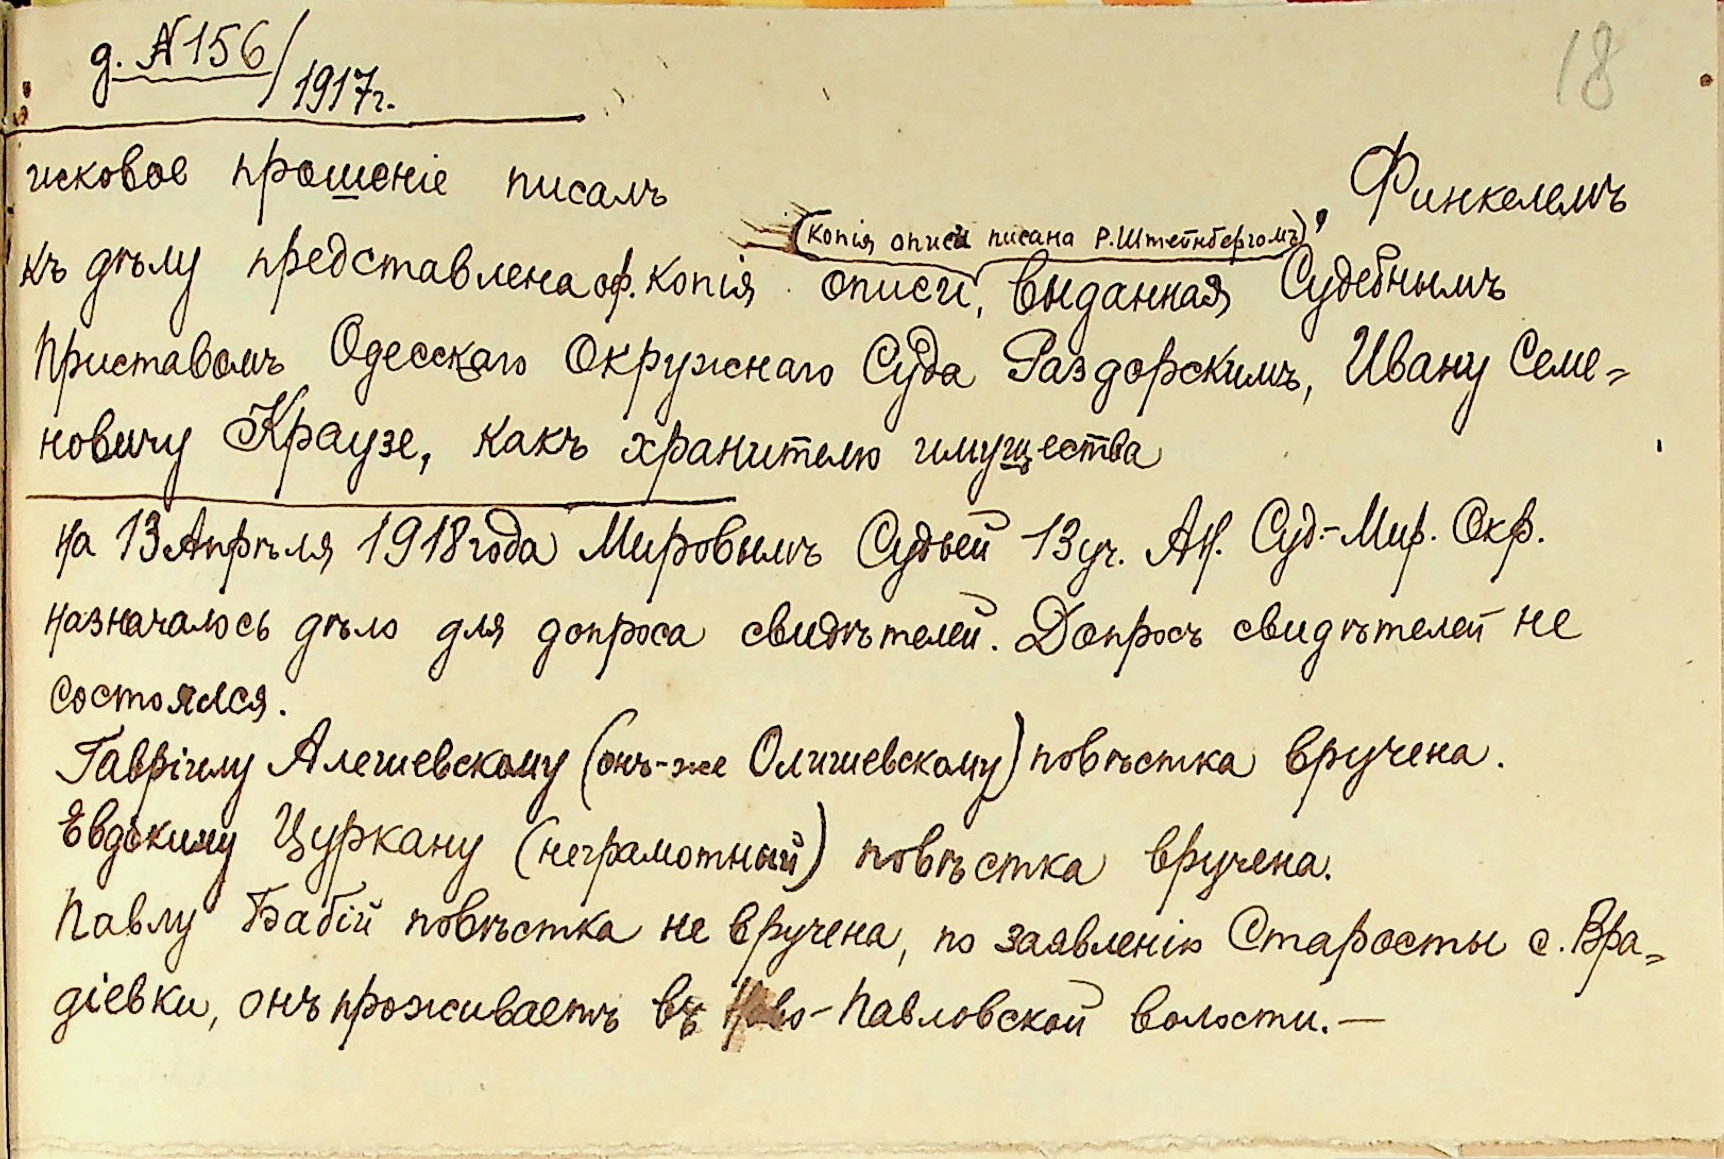 д. №156/1917г.
18
исковое прошеніе писалъ Финкелемъ
(копія описи писана Р. Штейнбергомъ),
къ дѣлу представлена оф. копія описи, выданная Судебнымъ
Приставомъ Одесскаго Окружнаго Суда Раздорскимъ, Ивану Семе=
новичу Краузе, какъ хранителю имущества
На 13 Апрѣля 1918 года Мировымъ Судьей 13 уч. Ан. Суд.-Мир. Окр.
назначалось дѣло для допроса свидѣтелей. Допросъ свидѣтелей не
состоялся.
Гавріилу Алешевскому (онъ-же Олишевскому) повѣстка вручена.
Евдокиму Цуркану (неграмотный) повѣстка вручена.
Павлу Бабій повѣстка не вручена, по заявленію Старосты с. Вра=
діевки, онъ проживаетъ въ Ново-Павловской волости.—